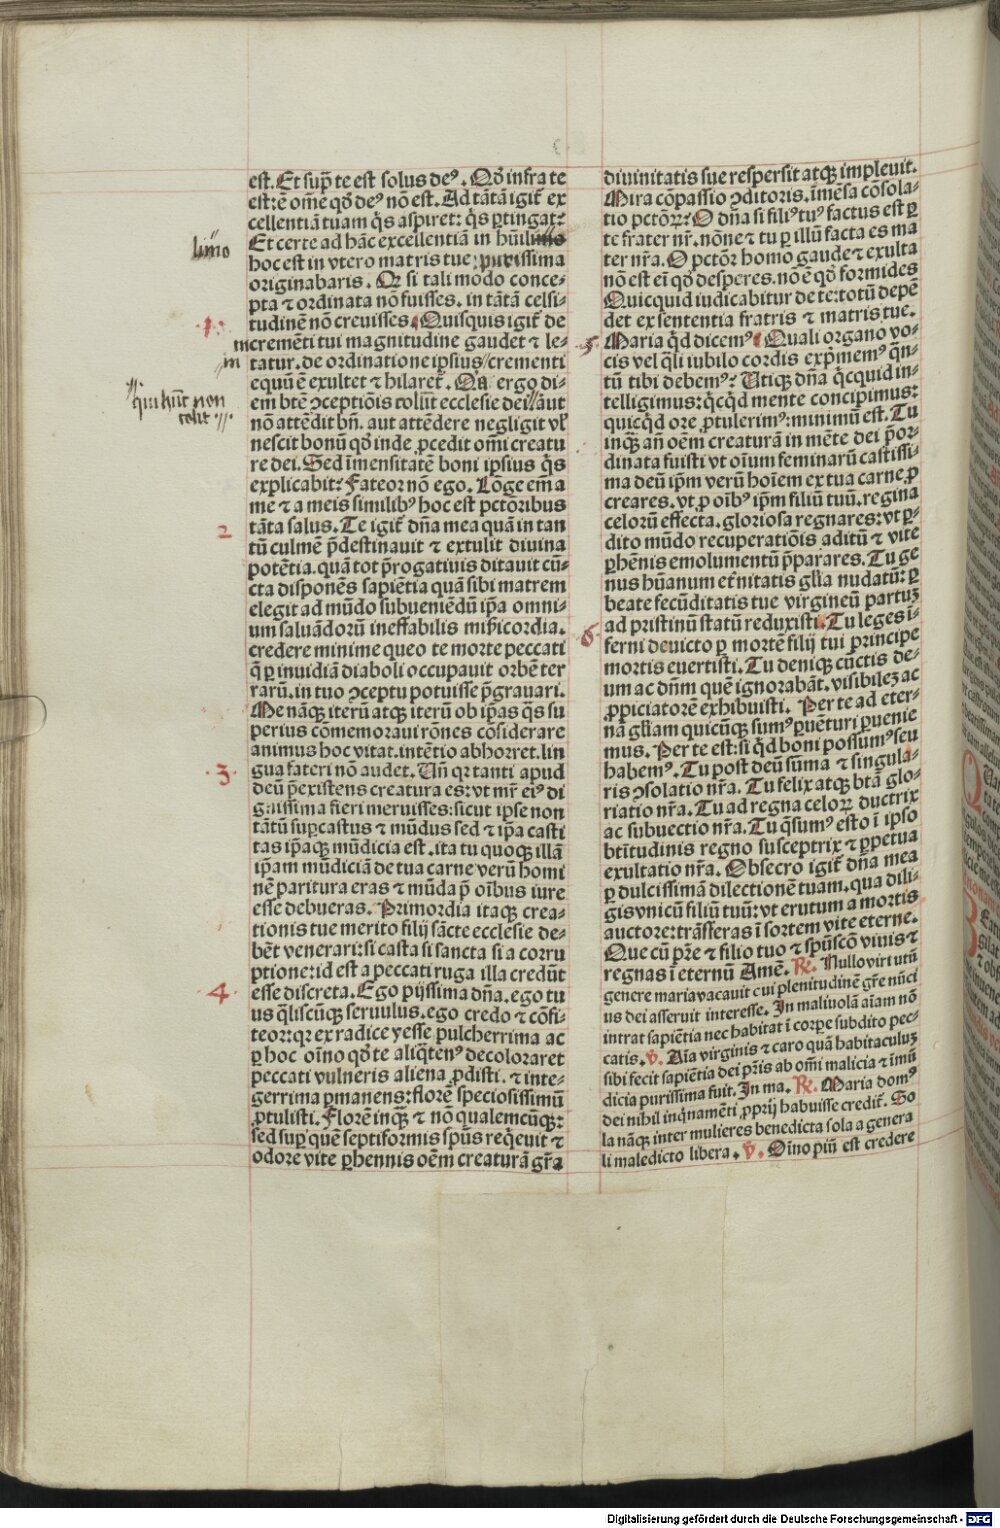 est. Et sup̄ te est solus deꝰ. Qđ infra te
est: ē om̄e qđ deꝰ nō est. Ad tātā igit̄ ex
cellentiā tuam q̄s aspiret: q̄s ꝑtingat?
Et certe ad hāc excellentiā in hūilimo
limo
hoc est in vtero matris tue: purissima
originabaris. Qꝛ si tali modo conce-
pta ⁊ ordinata nō fuisses. in tātā celsi-
·1· tudinē nō creuisses. Quisquis igit̄ de
incremēti tui magnitudine gaudet ⁊ le-
tatur. de ordinatione ipsius crementi
in
equū ē exultet ⁊ hilaret̄. ergo di-
em btē ↄceptiōis colūt ecclesie dei aut
qui hūt non
colit
nō attēdit bn̄. aut attēdere negligit vl̓
nescit bonū qđ inde ꝓcedit om̄i creatu
re dei. Sed īmensitatē boni ipsius q̄s
explicabit? Fateor nō ego. Lōge em̄ a
me ⁊ a meis similibꝰ hoc est pctōribus
2 tāta salus. Te igit̄ dn̄a mea quā in tan
tū culmē p̄destinauit ⁊ extulit diuina
potētia. quā tot p̄rogatiuis ditauit cū-
cta disponēs sapiētia quā sibi matrem
elegit ad mūdo subueniēdū ip̄a omni-
um saluādorū ineffabilis mīcordia.
credere minime queo te morte peccati
q̄ ꝑ inuidiā diaboli occupauit orbē ter
rarū. in tuo ↄceptu potuisse p̄grauari.
Me nāqꝫ iterū atqꝫ iterū ob ip̄as q̄s su
perius cōmemoraui rōnes cōsiderare
animus hoc vitat. intētio abhorret. lin
·3· gua fateri nō audet. Vn̄ qꝛ tanti apud
deū p̄existens creatura es: vt mr̄ eiꝰ di
gnissima fieri meruisses: sicut ipse non
tātū suꝑcastus ⁊ mūdus sed ⁊ ip̄a casti
tas ip̄aqꝫ mūdicia est. ita tu quoqꝫ illā
ip̄am mūdiciā de tua carne verū homi
nē paritura eras ⁊ mūda p̄ oībus iure
esse debueras. Primordia itaqꝫ crea-
tionis tue merito filij sācte ecclesie de-
bēt venerari: si casta si sancta si a corru
ptione: id est a peccati ruga illa credūt
·4· esse discreta. Ego pijssima dn̄a. ego tu
us q̄liscūqꝫ seruulus. ego credo ⁊ cōfi-
teor: qꝛ ex radice yesse pulcherrima ac
ꝑ hoc oīno qđ te aliq̄tenꝰ decoloraret
peccati vulneris aliena ꝓdisti. ⁊ inte-
gerrima ꝑmanens: florē speciosissimū
ꝓtulisti. Florē inqꝫ ⁊ nō qualemcūqꝫ:
sed suꝑ quē septiformis spūs req̄euit ⁊
odore vite ꝑhennis oēm creaturā gr̄a
diuinitatis sue respersit atqꝫ impleuit.
Mira cōpassio ↄditoris. īmēsa cōsola-
tio pctōꝝ? O dn̄a si filiꝰ tuꝰ factus est ꝑ
te frater nr̄. nōne ⁊ tu ꝑ illū facta es ma
ter nr̄a. O pctōr homo gaude ⁊ exulta
nō est eī qđ desperes. nō ē qđ formides
Quicquid iudicabitur de te: totū depē
det ex sententia fratris ⁊ matris tue.
5 Maria q̄d dicemꝰ? Quali organo vo-
cis vel q̄li iubilo cordis exp̄memꝰ q̄n-
tū tibi debemꝰ? Vtiqꝫ dn̄a q̄cquid in-
telligimus: q̄cq̄d mente concipimus:
quicq̄d ore ꝓtulerimꝰ: minimū est. Tu
inqꝫ an̄ oēm creaturā in mēte dei p̄or-
dinata fuisti vt oīum feminarū castissi-
ma deū ip̄m verū hoīem ex tua carne ꝓ
creares. vt ꝓ oībꝰ ip̄m filiū tuū. regina
celorū effecta. gloriosa regnares: vt ꝑ-
dito mūdo recuperatiōis aditū ⁊ vite
ꝑhēnis emolumentū p̄parares. Tu ge
nus hūanum et̄nitatis gl̄ia nudatū: ꝑ
beate fecūditatis tue virgineū partuꝫ
ad pristinū statū reduxisti. Tu leges ī-
6 ferni deuicto ꝑ mortē filij tui principe
mortis euertisti. Tu deniqꝫ cūctis de-
um ac dn̄m quē ignorabāt. visibileꝫ ac
ꝓpiciatorē exhibuisti. Per te ad eter-
nā gl̄iam quicūqꝫ sumꝰ ꝑuēturi ꝑuenie
mus. Per te est: si q̄d boni possumꝰ seu
habemꝰ. Tu post deū sūma ⁊ singula-
ris ↄsolatio nr̄a. Tu felix atqꝫ btā glo-
riatio nr̄a. Tu ad regna celoꝝ ductrix
ac subuectio nr̄a. Tu q̄sumꝰ esto ī ipso
btītudinis regno susceptrix ⁊ ꝑpetua
exultatio nr̄a. Obsecro igit̄ dn̄a mea
ꝑ dulcissimā dilectionē tuam. qua dili-
gis vnicū filiū tuū: vt erutum a mortis
auctore: trāsferas ī sortem vite eterne.
Que cū pr̄e ⁊ filio tuo ⁊ spūscō viuis ⁊
regnas ī eternū Amē. ℟. Nullo viri utū
genere maria vacauit cui plenitudinē gr̄e nūci
us dei asseruit interesse. In maliuolā aīam nō
intrat sapiētia nec habitat ī corꝑe subdito pec-
catis. ℣. Aīa virginis ⁊ caro quā habitaculuꝫ
sibi fecit sapiētia dei pr̄is ab om̄i malicia ⁊ īmū
dicia purissima fuit. In ma. ℟. Maria domꝰ
dei nihil inq̄namēti ꝓprij habuisse credit̄. So
la nāqꝫ inter mulieres benedicta sola a genera
li maledicto libera. ℣. Oīno piū est credere
Digitalisierung gefördert durch die Deutsche Forschungsgemeinschaft - DFG